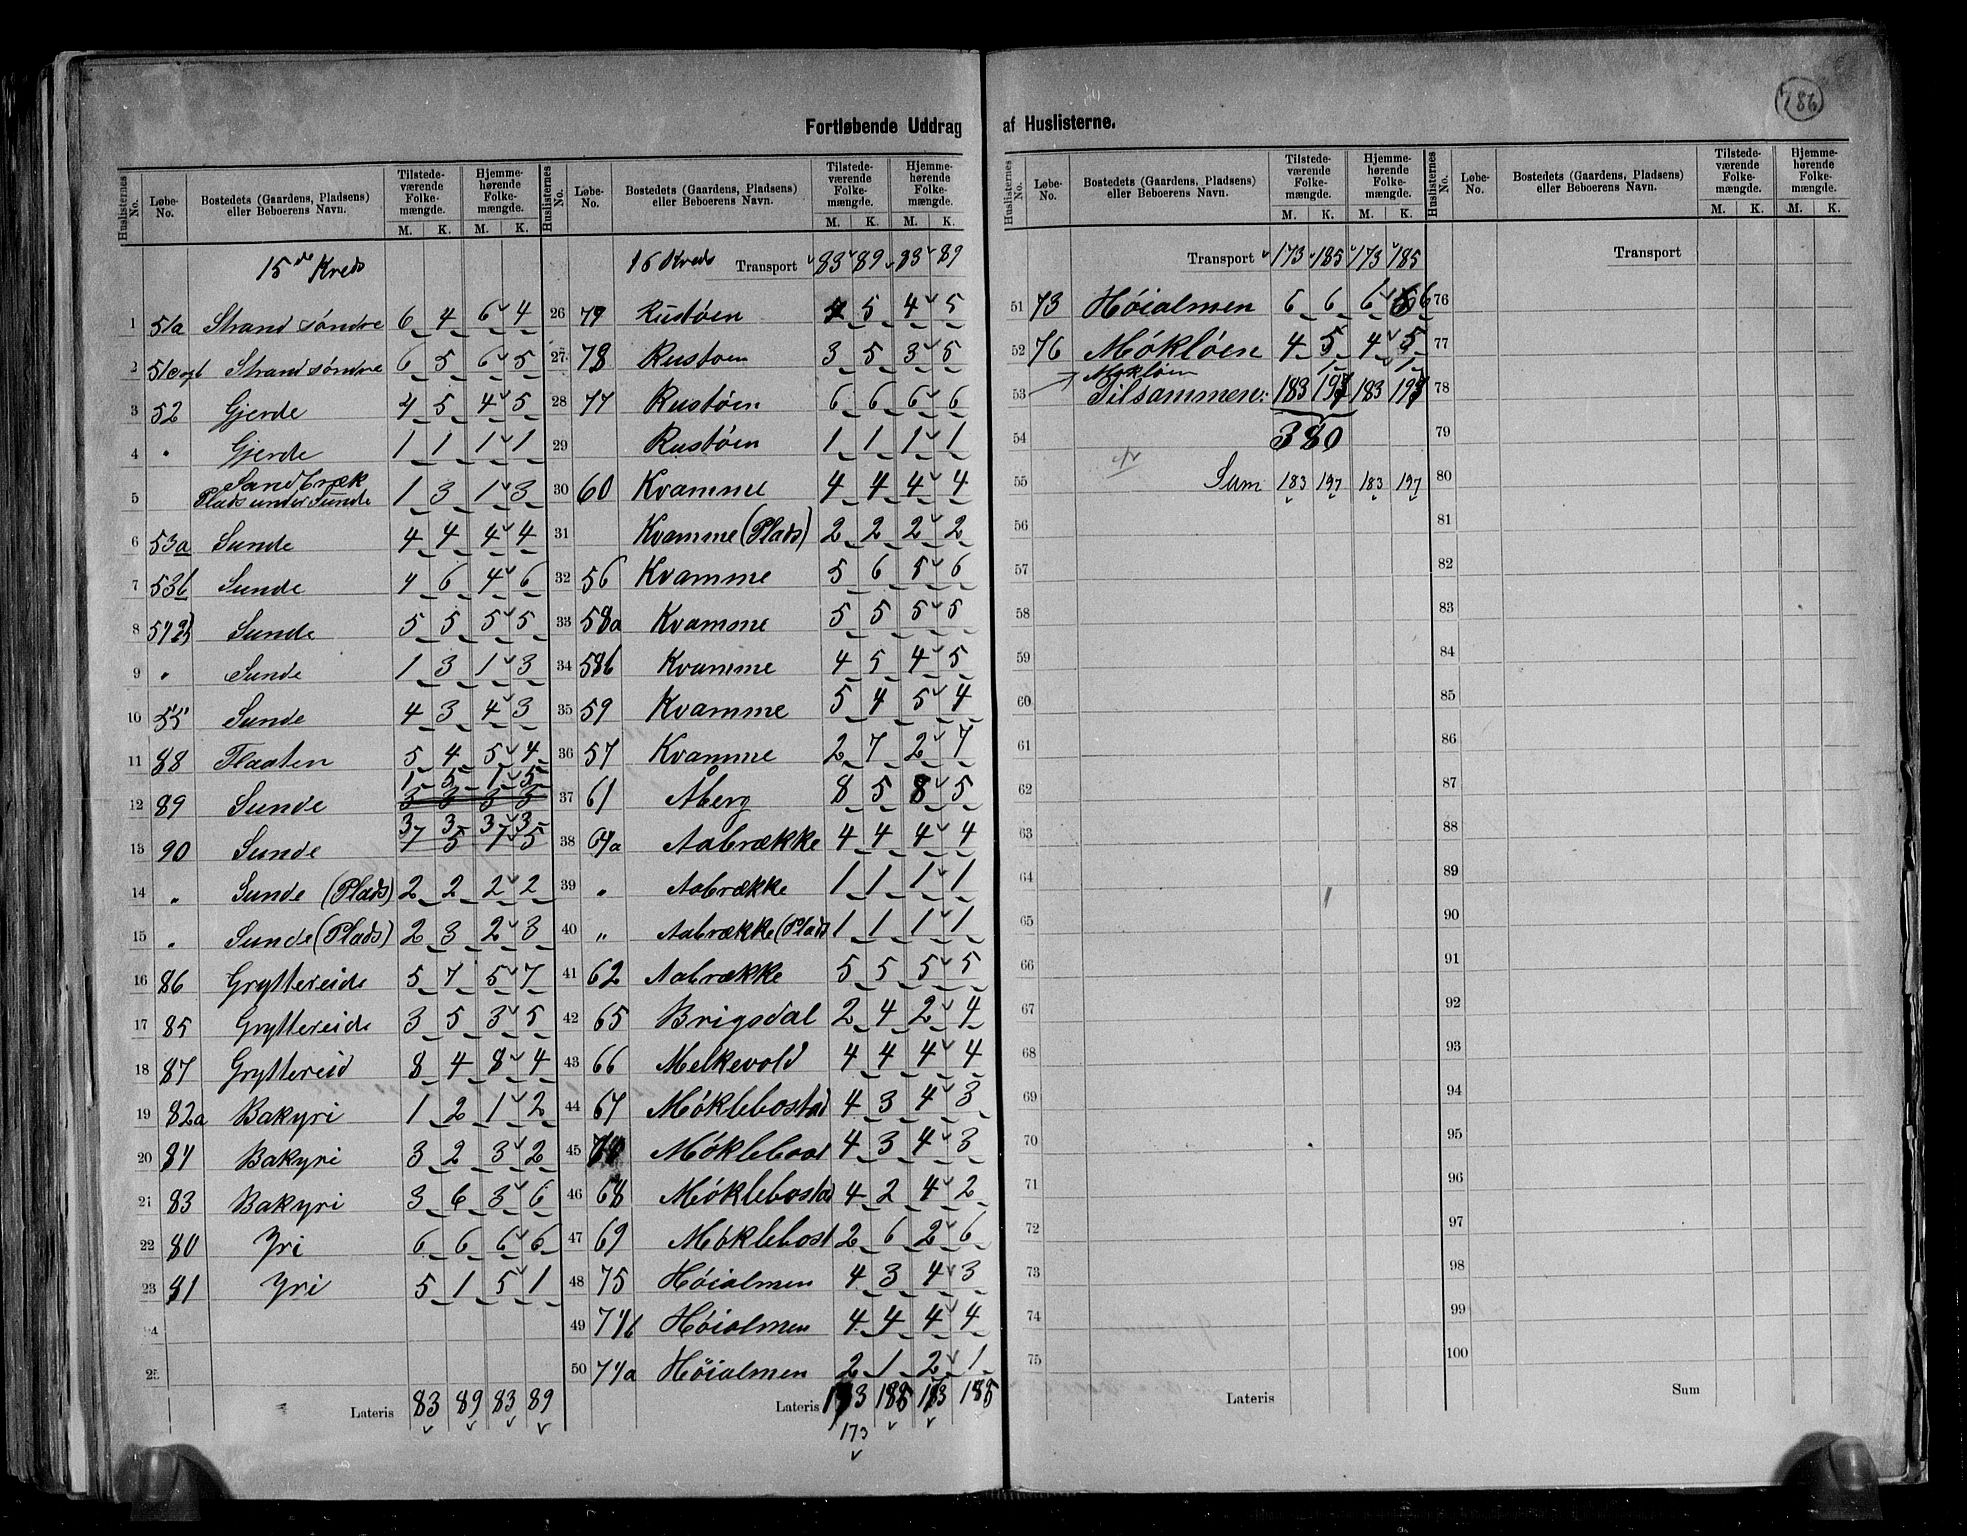 786
Fortløbende Uddrag af Huslisterne.
Huslisternes No. | Løbe-No. | Bostedets (Gaardens, Pladsens) eller Beboerens Navn. | Tilstede-værende Folke-mængde. M. K. | Hjemme-hørende Folke-mængde. M. K.
15de Kreds
1 51a Strand søndre 6 4 6 4
2 Strand søndre 6 5 6 5
3 52 Gjerde 4 5 4 5
4 " Gjerde 1 1 1 1
5 Sandbræk Plads under Sunde 1 3 1 3
6 53a Sunde 4 4 4 4
7 53b Sunde 4 6 4 6
8 Sunde 5 5 5 5
9 " Sunde 1 3 1 3
10 55 Sunde 4 3 4 3
11 88 Flaaten 5 4 5 4
12 89 Sunde 1 5 1 5
3 3 3 3
13 90 Sunde 3 3 3 3
7 5 7 5
14 " Sunde (Plads) 2 2 2 2
15 " Sunde (Plads) 2 3 2 3
16 86 Gryttereide 5 7 5 7
17 85 Gryttereide 3 5 3 5
18 87 Gryttereid 8 4 8 4
19 82a Bakyri 1 2 1 2
20 84 Bakyri 3 2 3 2
21 83 Bakyri 3 6 3 6
22 80 Yri 6 6 6 6
23 81 Yri 5 1 5 1
24
25
Lateris 83 89 83 89
Huslisternes No. | Løbe-No. | Bostedets (Gaardens, Pladsens) eller Beboerens Navn. | Tilstede-værende Folke-mængde. M. K. | Hjemme-hørende Folke-mængde. M. K.
16 Kreds Transport 83 89 83 89
26 79 Rustøen 4 5 4 5
27 78 Rustøen 3 5 3 5
28 77 Rustøen 6 6 6 6
29 Rustøen 1 1 1 1
30 60 Kvamme 4 4 4 4
31 Kvamme (Plads) 2 2 2 2
32 56 Kvamme 5 6 5 6
33 58a Kvamme 5 5 5 5
34 58b Kvamme 4 5 4 5
35 59 Kvamme 5 4 5 4
36 57 Kvamme 2 7 2 7
37 61 Åberg 8 5 8 5
38 64a Aabrække 4 4 4 4
39 " Aabrække 1 1 1 1
40 " Aabrække (Plads 1 1 1 1
41 62 Aabrække 5 5 5 5
42 65 Brigsdal 2 4 2 4
43 66 Melkevold 4 4 4 4
44 67 Møklebostad 4 3 4 3
45 Møklebost 4 3 4 3
46 68 Møklebostad 4 2 4 2
47 69 Møklebost 2 6 2 6
48 75 Høialmen 4 3 4 3
49 74b Høialmen 4 4 4 4
50 74a Høialmen 2 1 2 1
Lateris 173 185 173 185
173
Huslisternes No. | Løbe-No. | Bostedets (Gaardens, Pladsens) eller Beboerens Navn. | Tilstede-værende Folke-mængde. M. K. | Hjemme-hørende Folke-mængde. M. K.
Transport 173 185 173 185
51 73 Høialmen 6 6 6 6
52 76 Møkløen 4 5 4 5
Møkløen 1 1
53 Tilsammen: 183 197 183 197
54 380
55 Sum 183 197 183 197
56
57
58
59
60
61
62
63
64
65
66
67
68
69
70
71
72
73
74
75
Lateris
Huslisternes No. | Løbe-No. | Bostedets (Gaardens, Pladsens) eller Beboerens Navn. | Tilstede-værende Folke-mængde. M. K. | Hjemme-hørende Folke-mængde. M. K.
Transport
76
77
78
79
80
81
82
83
84
85
86
87
88
89
90
91
92
93
94
95
96
97
98
99
100
Sum